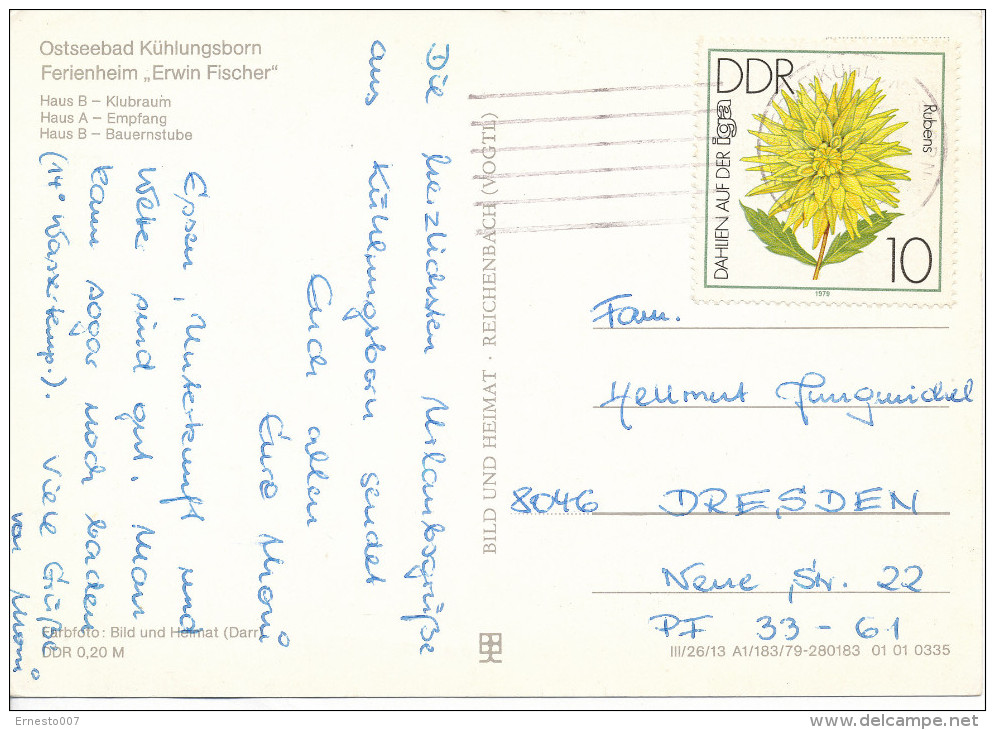 Ostseebad Kühlungsborn
Ferienheim „Erwin Fischer“
Haus B – Klubraum
Haus A – Empfang
Haus B – Bauernstube
Die herzlichsten Urlaubsgrüße
aus Kühlungsborn sendet
Euch allen
Eure Moni
Essen, Unterkunft und
Wetter sind gut. Man
kann sogar noch baden
(14° Wassertemp.). Viele Grüße
von Moni
Farbfoto: Bild und Heimat (Darr)
DDR 0,20 M
BILD UND HEIMAT · REICHENBACH (VOGTL)
DDR
DAHLIEN AUF DER iga
Rubens
10
1979
Fam.
Hellmut Junghnickel
8046 DRESDEN
Neue Str. 22
PF 33-61
III/26/13 A1/183/79-280183 01 01 0335
Ernesto007
delcampe.net